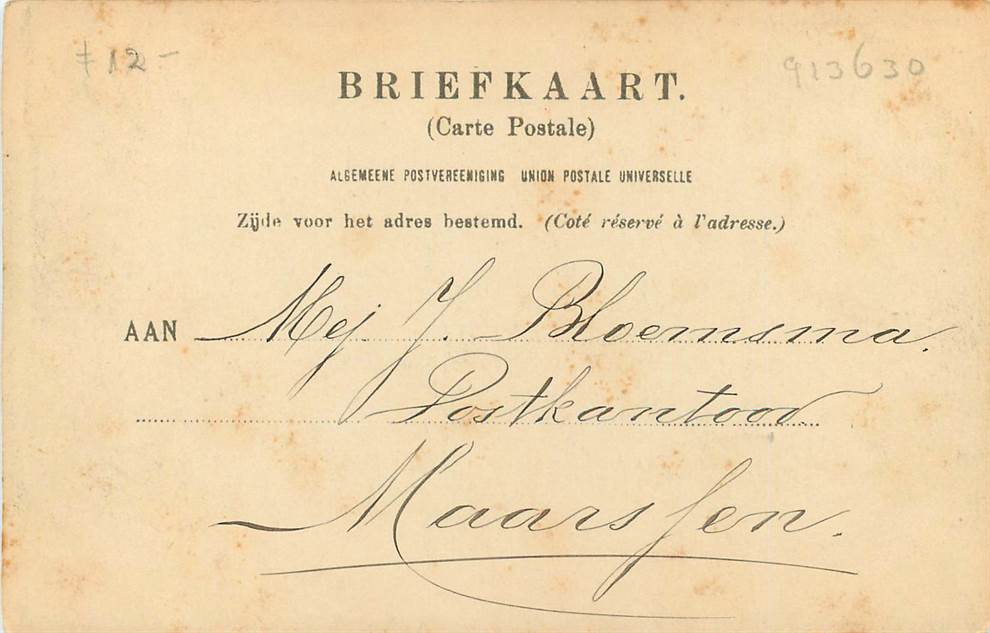 ƒ 12 -
913630
BRIEFKAART.
(Carte Postale)
ALGEMEENE POSTVEREENIGING UNION POSTALE UNIVERSELLE
Zijde voor het adres bestemd. (Coté réservé à l'adresse.)
AAN Mej. J. Bloemsma.
Postkantoor
Maarssen.